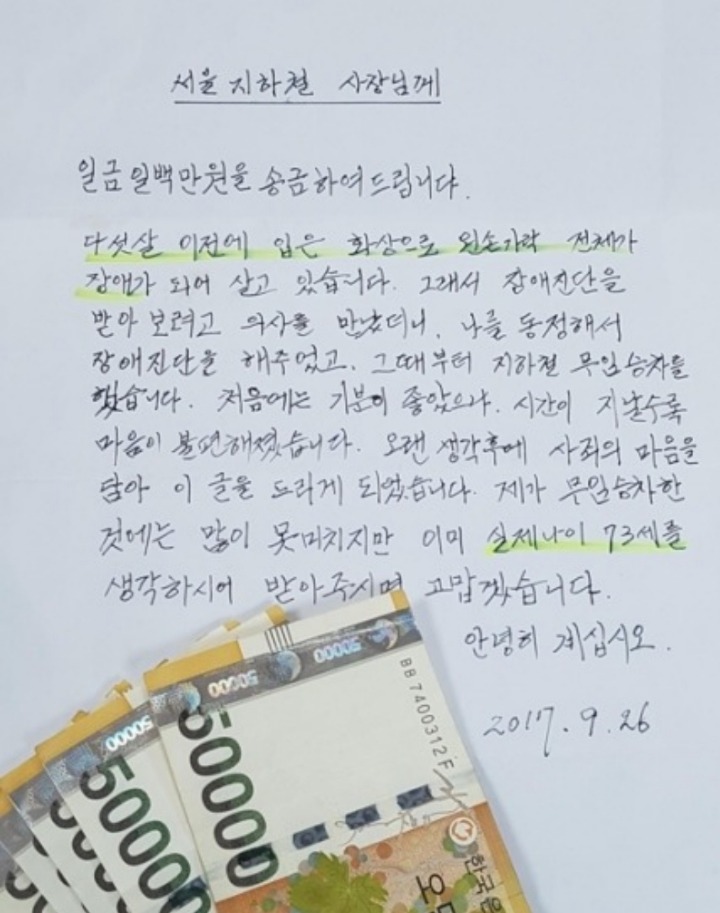 서울 지하철 사장님께
일금 일백만원을 송금하여드립니다.
다섯살 이전에 입은 화상으로 왼손가락 전체가
장애가 되어 살고 있습니다. 그래서 장애진단을
받아 보려고 의사를 만났더니, 나를 동정해서
장애진단을 해주었고, 그때부터 지하철 무임승차를
했습니다. 처음에는 기분이 좋았으나, 시간이 지날수록
마음이 불편해졌습니다. 오랜 생각후에 사죄의 마음을
담아 이 글을 드리게 되었습니다. 제가 무임승차한
것에는 많이 못미치지만 이미 실제나이 73세를
생각하시어 받아주시면 고맙겠습니다.
안녕히 계십시오.
2017. 9. 26
50000
50000
50000
BB7400312F
50000
50000
50000
한국은
오만